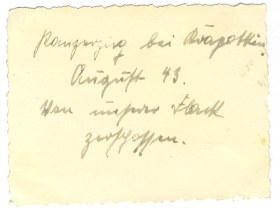 Panzerzug bei Krapotkin
August 43.
Von unserer Flack
zerschossen.